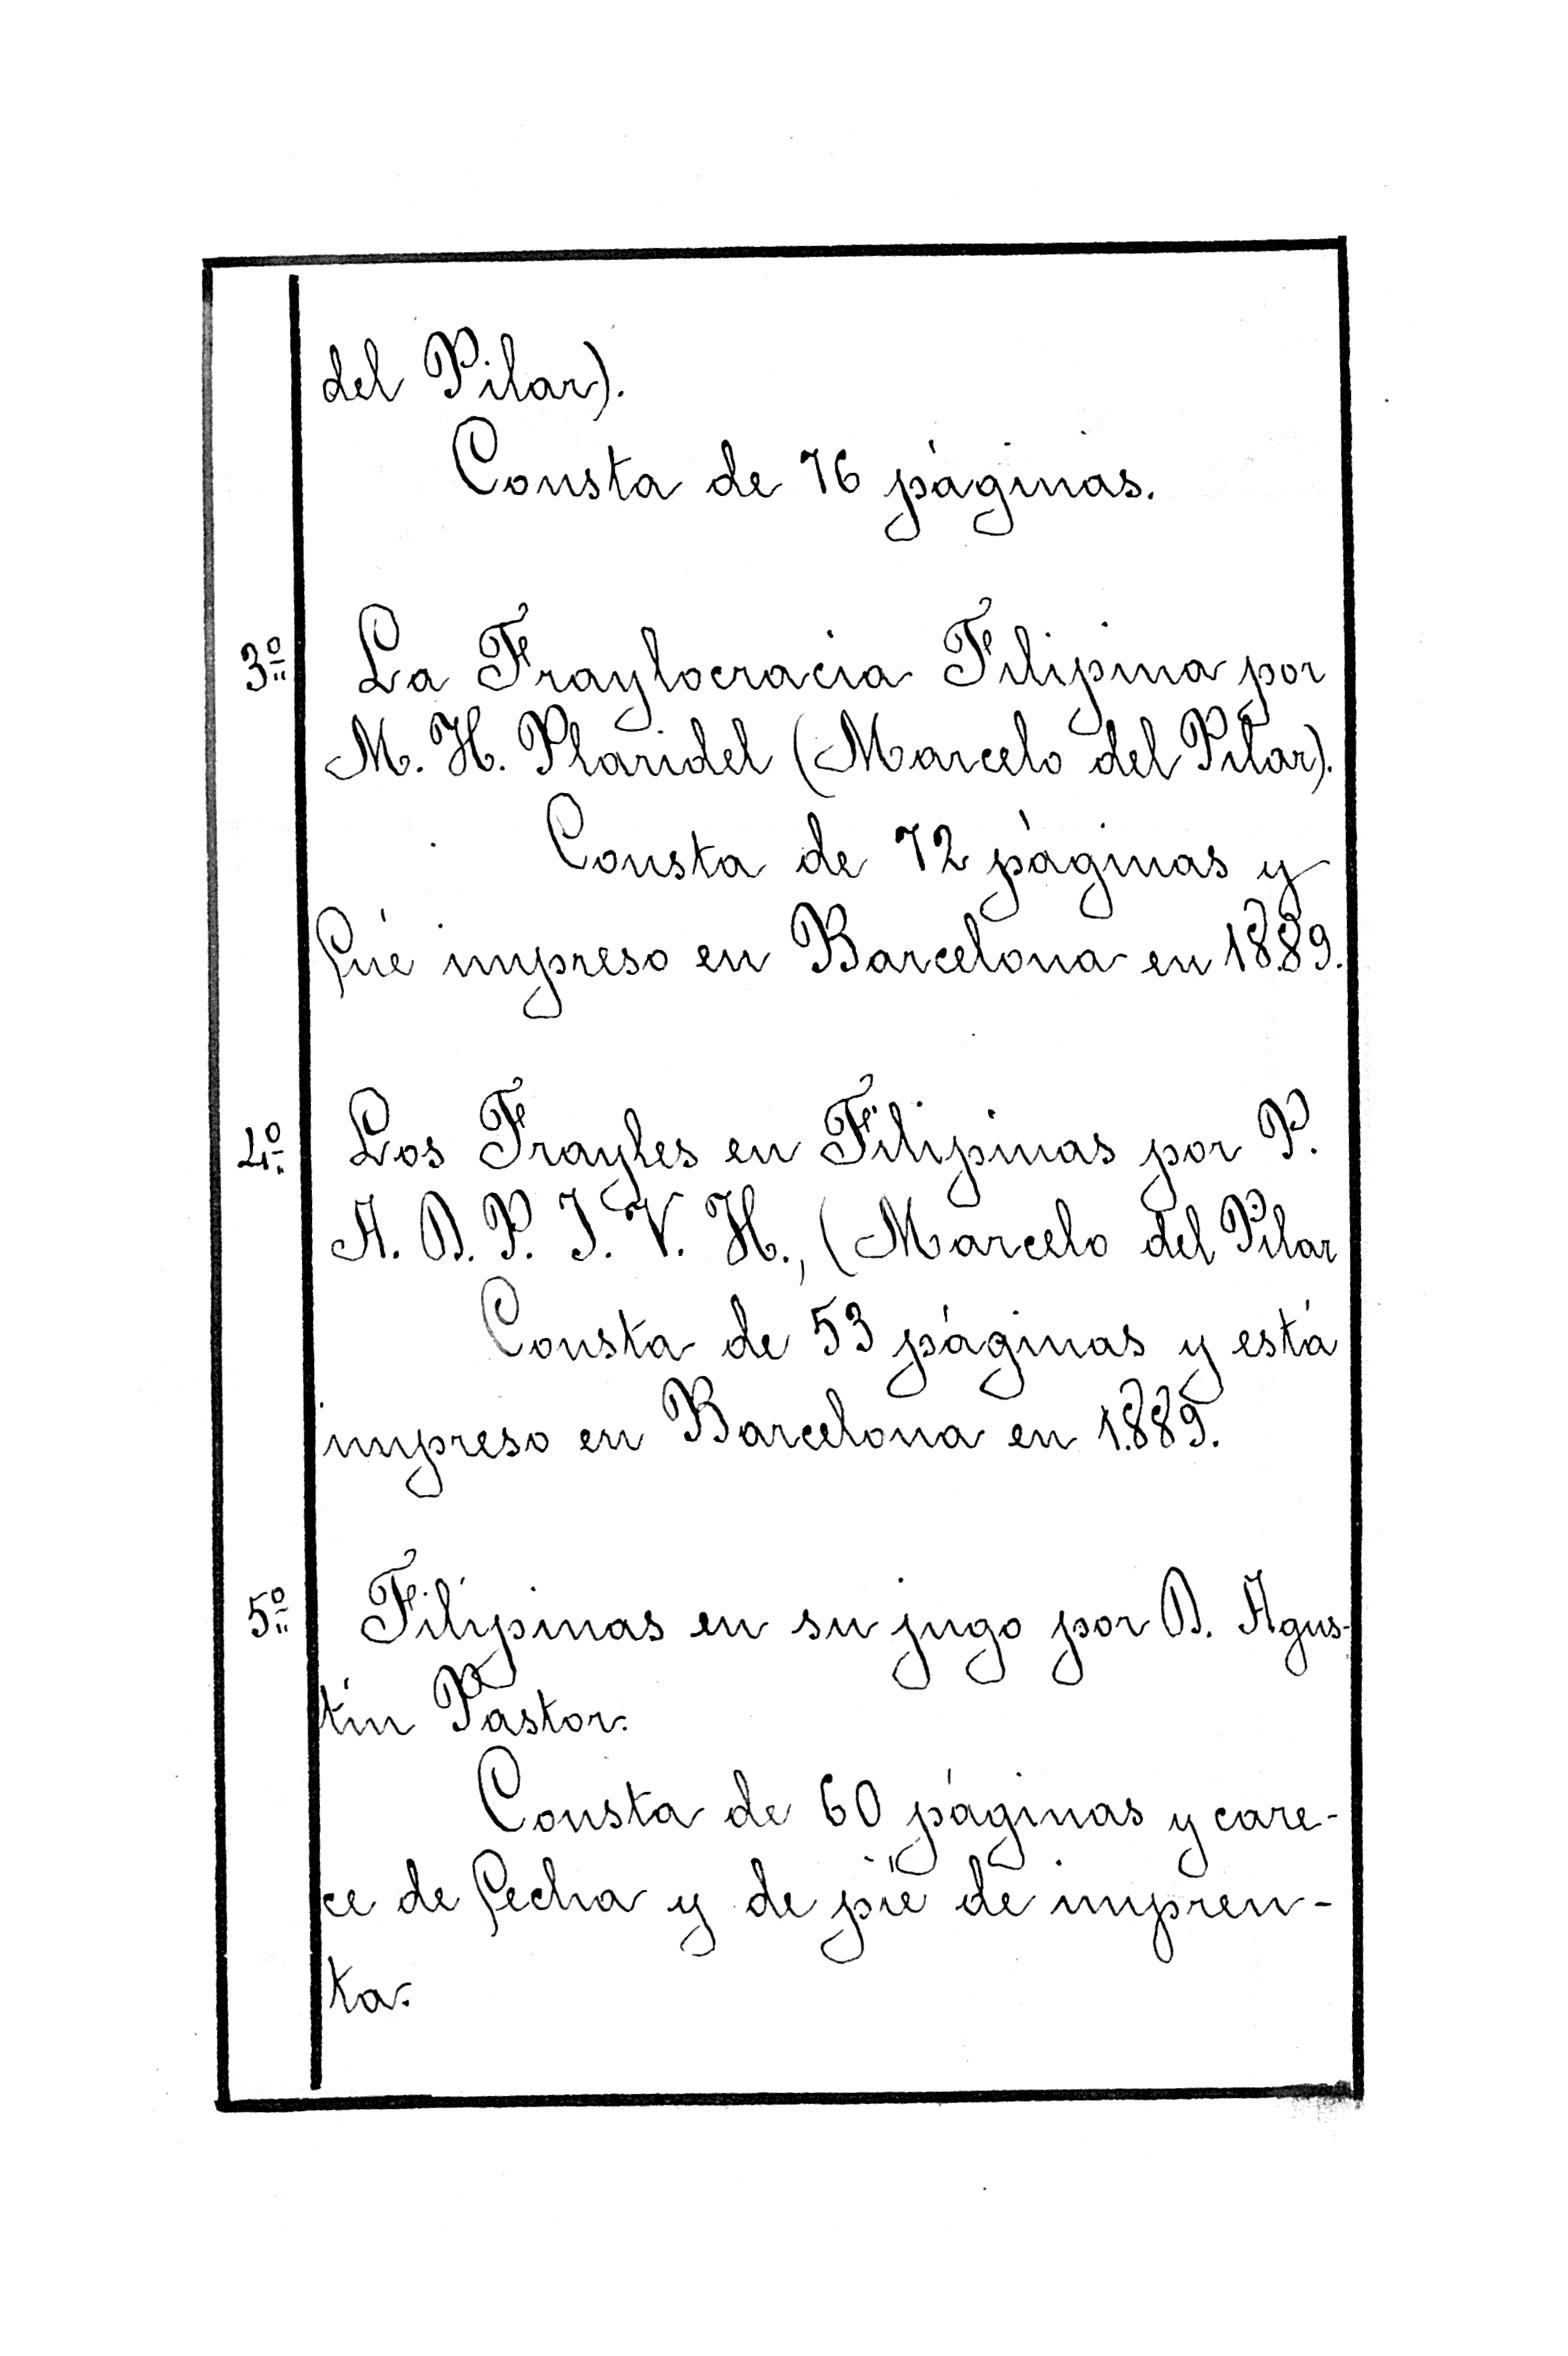 del Pilar).
Consta de 76 páginas.
3º La Fraylocracia Filipina por
M. H. Plaridel (Marcelo del Pilar).
Consta de 72 páginas y
fué impreso en Barcelona en 1889.
4º Los Frayles en Filipinas por P.
A. D. P. J. V. H., (Marcelo del Pilar
Consta de 53 páginas y está
impreso en Barcelona en 1.889.
5º Filipinas en su jugo por D. Agus-
tín Pastor.
Consta de 60 páginas y care-
ce de fecha y de pié de impren-
ta.